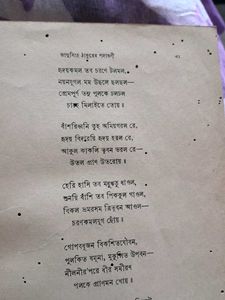 ভানুসিংহ ঠাকুরের পদাবলী ৩১
হৃদয়কমল তব চরণে টলমল,
নয়নযুগল মম উছলে ছলছল—
প্রেমপূর্ণ তনু পুলকে ঢলঢল
চাহে মিলাইতে তোয়॥
বাঁশরিধ্বনি তুহ অমিয়গরল রে,
হৃদয় বিদারয়ি হৃদয় হরল রে,
আকুল কাকলি ভুবন ভরল রে—
উতল প্রাণ উতরোয়॥
হেরি হাসি তব মধুঋতু ধাওল,
শুনয়ি বাঁশি তব পিককুল গাওল,
বিকল ভ্রমরসম ত্রিভুবন আওল—
চরণকমলযুগ ছোঁয়॥
গোপবধূজন বিকশিতযৌবন,
পুলকিত যমুনা, মুকুলিত উপবন—
নীলনীর'পরে ধীর সমীরণ
পলকে প্রাণমন খোয়॥